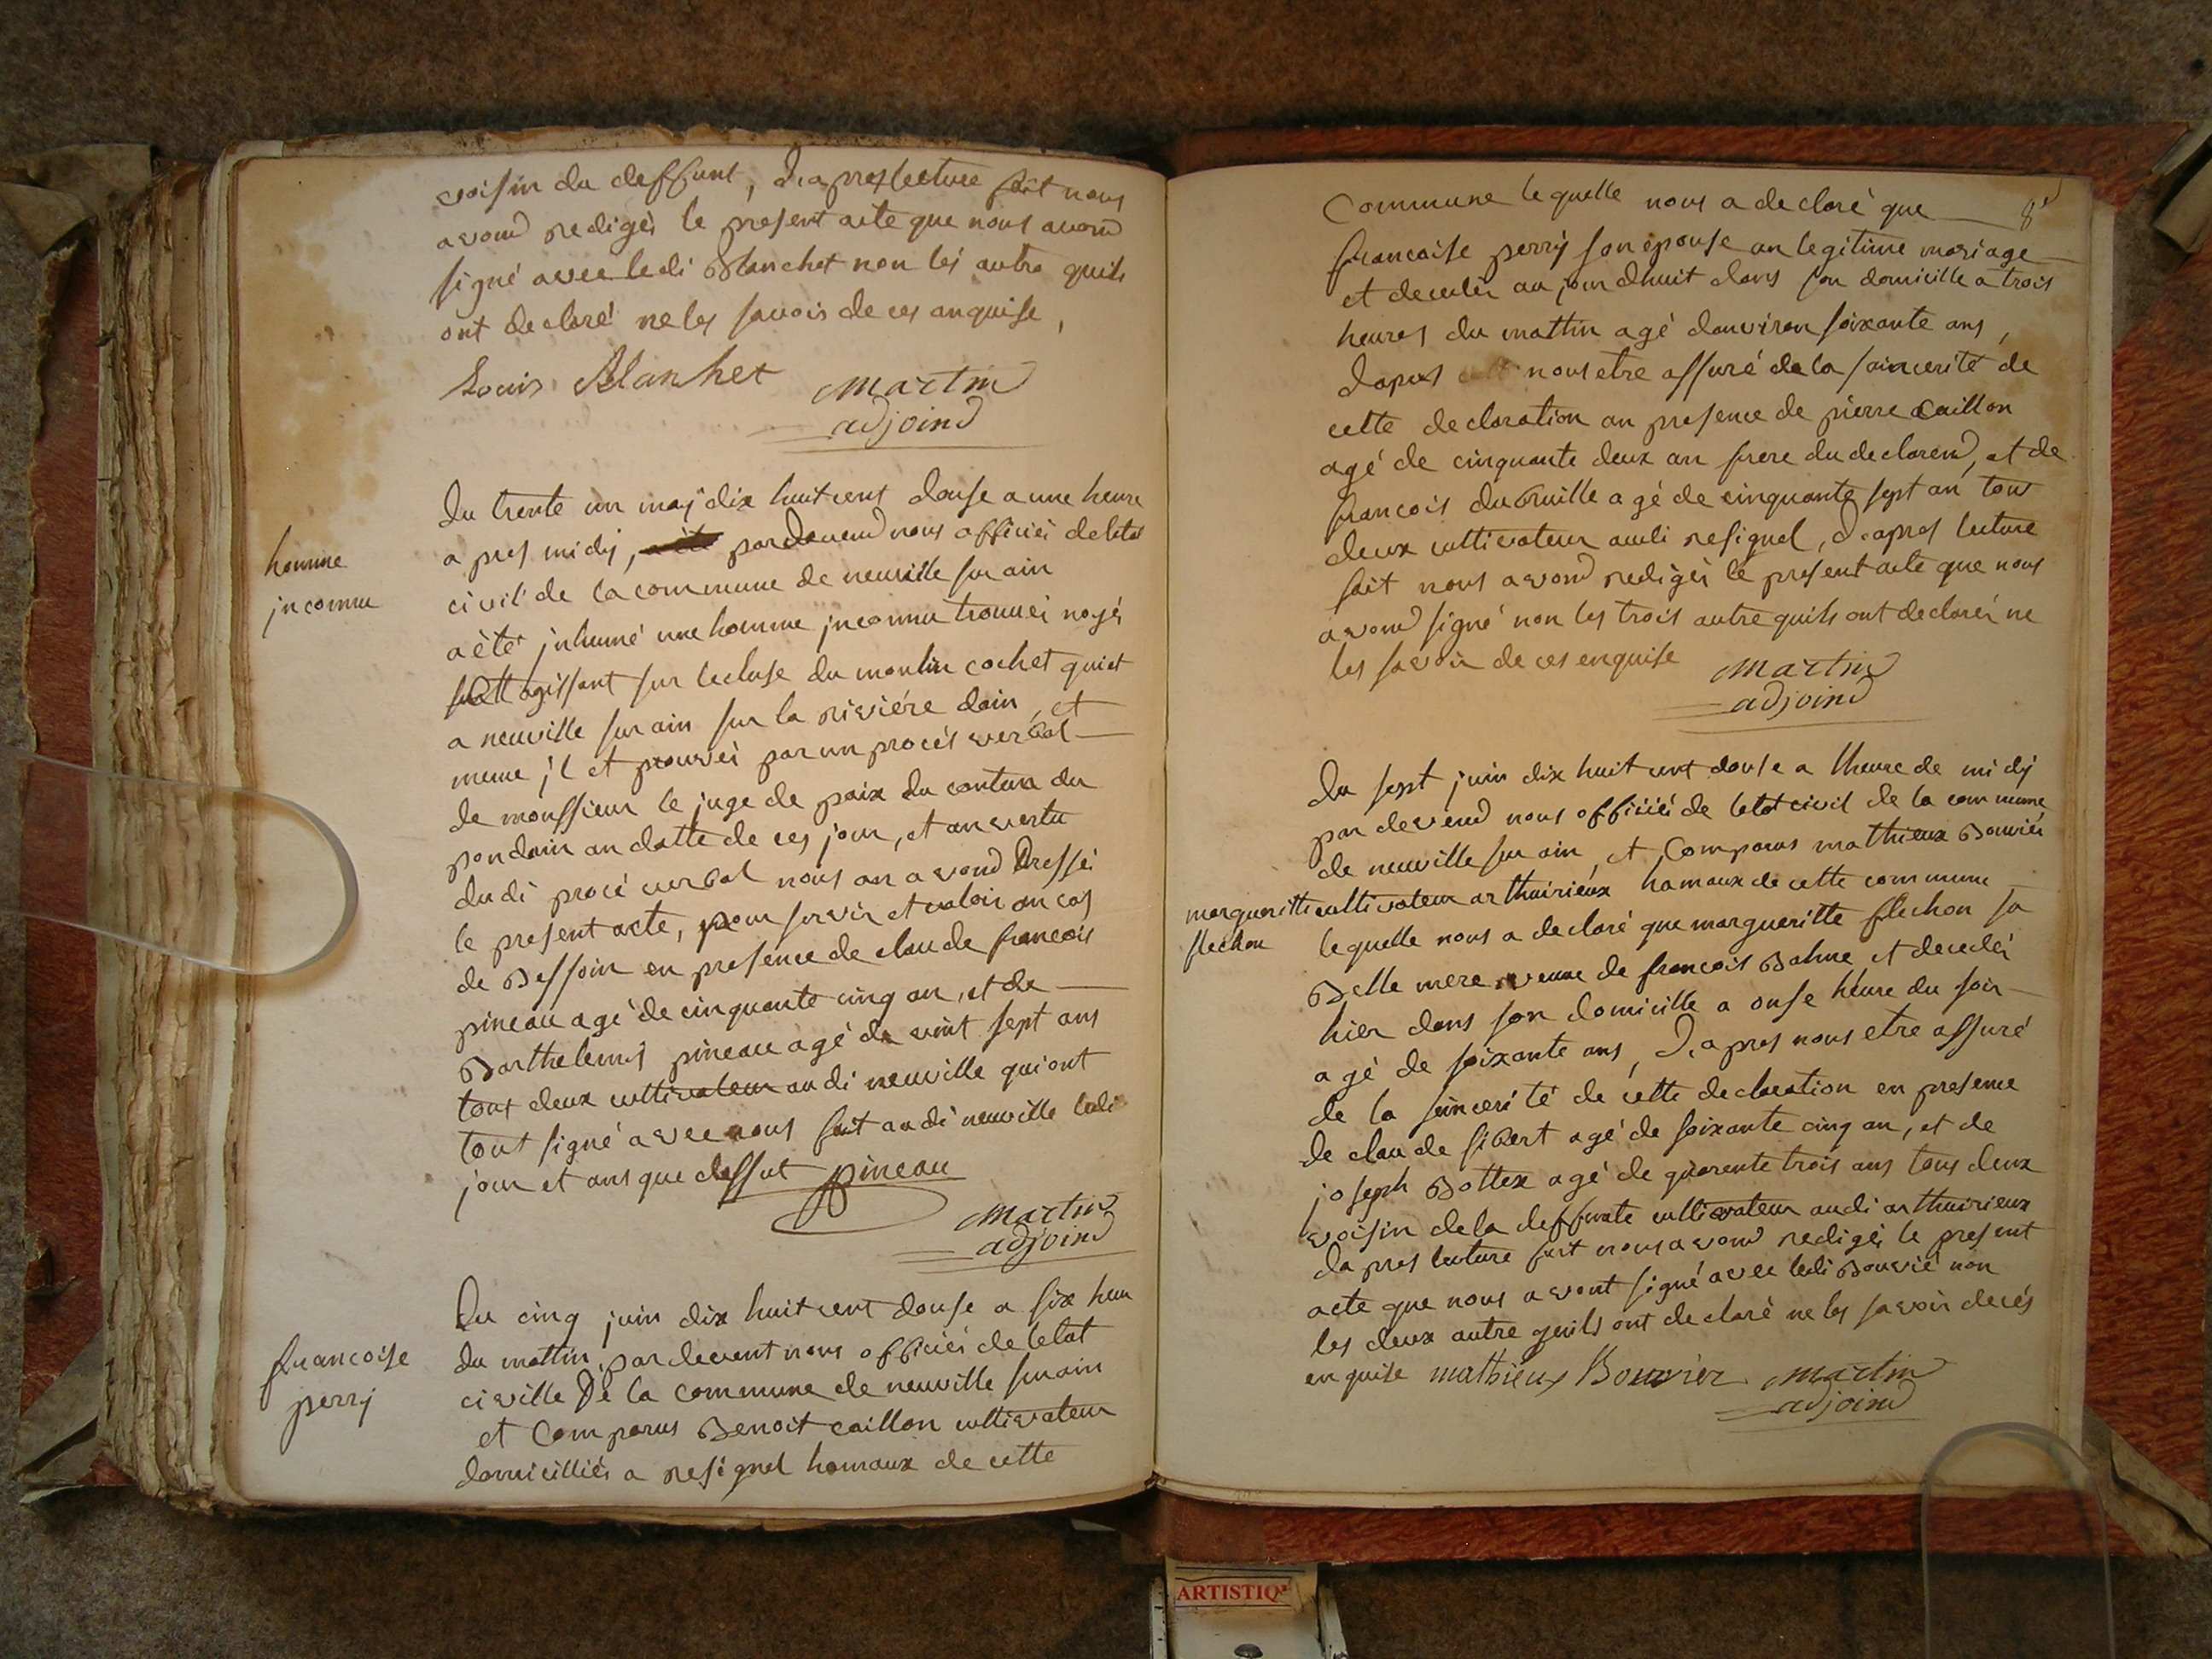 voisin du deffunt, d.apres lecture fait nous
avond redigés le present acte que nous avond
signé avec ledi Blanchet non lés autre quils
ont declaré ne les savois de ces anquise,
Louis Blanhet martin
adjoind
homme
jnconnu
Du trente un maÿ dix huit cent douse a une heure
a pres midÿ, pardevend nous officiéi de letat
civil de la commune de neuville sur ain
a été jnhumé une homme jnconnu trouvéi noyéi
agissant sur lecluse du moulin cochet qui et
a neuville sur ain sur la riviére dain, et
meme jl et prouvéi par un procés verbal
de monssieur le juge de paix du conton du
pondain an datte de ces jour, et an vertu
dudi procé verbal nous an avond Dressé
le present acte, pour servir et valoir an cas
de Bessoin en presence de claude francois
pineau agé de cinquante cinq an, et de
Barthelemÿ pineau agé de vint sept ans
tous deux cultivateur audi neuville qui ont
tout signé avec nous fait audi neuville ledi
jour et ans que dessut pineau
martin
adjoind
francoise
perrÿ
Du cinq juin dix huit cent douse a six heur
du mattin, pardevent nous officiéi de letat
civille De la commune de neuville sur ain
et Comparus Benoit caillon cultivateur
domicilliéi a resignel hamaux de cette
8e
Commune le quelle nous a declaré que
francoise perrÿ son épouse an legitime mariage
et decedéi au jour dhuit dans son domicille a trois
heures du mattin agé danviron soixante ans,
dapres nous etre assuré de la saincerité de
cette declaration an presence de pierre caillon
agé de cinquante deux an frere du declarend, et de
francois dubruille agé de cinquante sept an tous
deux cultivateur audi resignel, d.apres lecture
fait nous avond redigéi le present acte que nous
avond signé non les trois autre quils ont declaréi ne
les savoir de ces enquise martin
adjoind
Du sept juin dix huit cent douse a lheure de midÿ
par devend nous officiéi de letat civil de la commune
de neuville sur ain, et Comparus mathieux Bouviéi
margueritte
flechon
cultivateur a thuirieux hamaux de cette commune
lequelle nous a declaré que margueritte flechon sa
Belle mere veuve de francois Balme et decedéi
hier dans son domicille a onse heure du soir
agé de soixante ans, d.apres nous etre assuré
de la sincerité de cette declaration en presence
de claude sibert agé de soixante cinq an, et de
joseph Bottex agé de quarente trois ans tous deux
voisin de la deffunte cultivateur audi arthuirieux
dapres lecture fait nous avond redigéi le present
acte que nous avont signé avec ledi Bouvié non
les deux autre quils ont declaré ne les savoir decés
enquise mathieux Bouvier martin
adjoind
ARTISTIQ